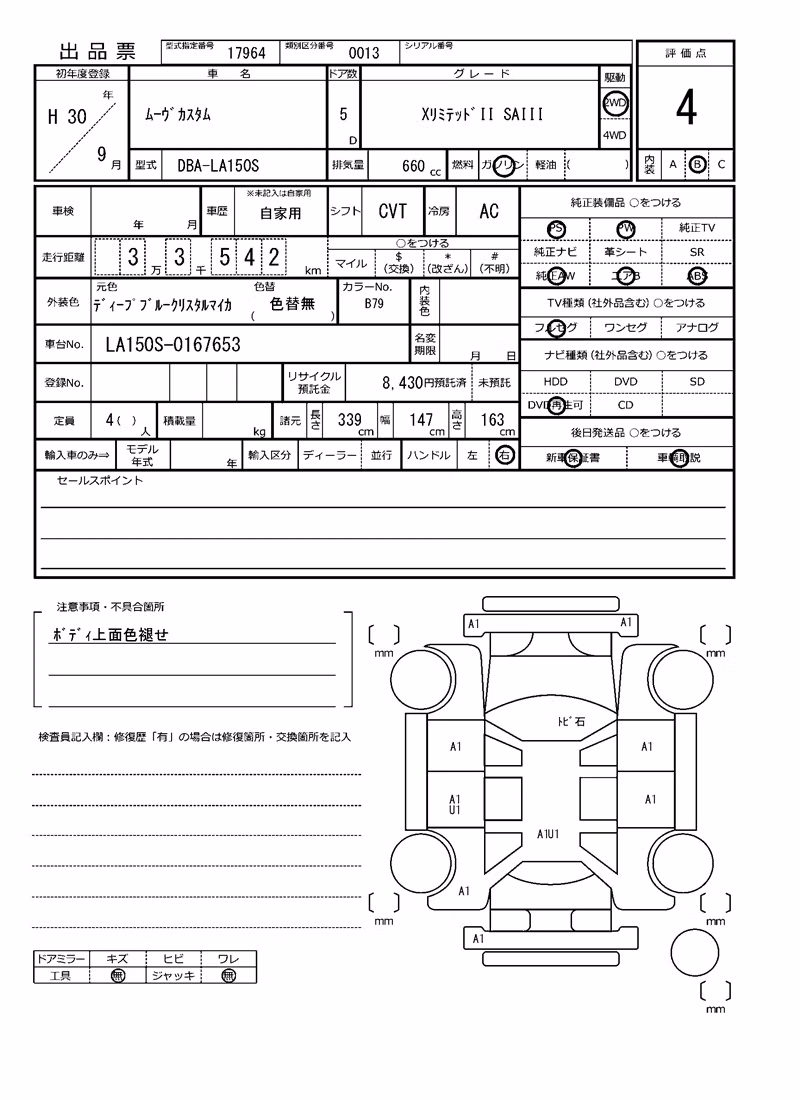 出品票 型式指定番号 17964 類別区分番号 0013 シリアル番号
評価点
初年度登録 車名 ドア数 グレード 駆動
H 30 年 9 月
ﾑｰｳﾞｶｽﾀﾑ 5 D XﾘﾐﾃｯﾄﾞII SAIII 2WD
4WD
4
型式 DBA-LA150S 排気量 660 cc 燃料 ガソリン 軽油 ( )
内装 A B C
車検 年 月 車歴 ※未記入は自家用 自家用 シフト CVT 冷房 AC
純正装備品 ○をつける
PS PW 純正TV
走行距離 3 万 3 千 5 4 2 km
○をつける
マイル $(交換) *(改ざん) #(不明)
純正ナビ 革シート SR
純正AW エアB ABS
外装色 元色 ﾃﾞｨｰﾌﾟﾌﾞﾙｰｸﾘｽﾀﾙﾏｲｶ 色替 ( 色替無 ) カラーNo. B79 内装色
TV種類 (社外品含む) ○をつける
フルセグ ワンセグ アナログ
車台No. LA150S-0167653 名変期限 月 日
ナビ種類 (社外品含む) ○をつける
登録No. リサイクル預託金 8,430円預託済 未預託
HDD DVD SD
DVD再生可 CD
定員 4( ) 人 積載量 kg 諸元 長さ 339 cm 幅 147 cm 高さ 163 cm
後日発送品 ○をつける
輸入車のみ⇒ モデル年式 年 輸入区分 ディーラー 並行 ハンドル 左 右
新車保証書 車輌取説
セールスポイント
注意事項・不具合箇所
ﾎﾞﾃﾞｨ上面色褪せ
検査員記入欄：修復歴「有」の場合は修復箇所・交換箇所を記入
A1 A1
mm mm
ﾄﾋﾞ石
A1 A1
A1 A1
U1
A1U1
A1
mm mm
A1
mm
ドアミラー キズ ヒビ ワレ
工具 無 ジャッキ 無